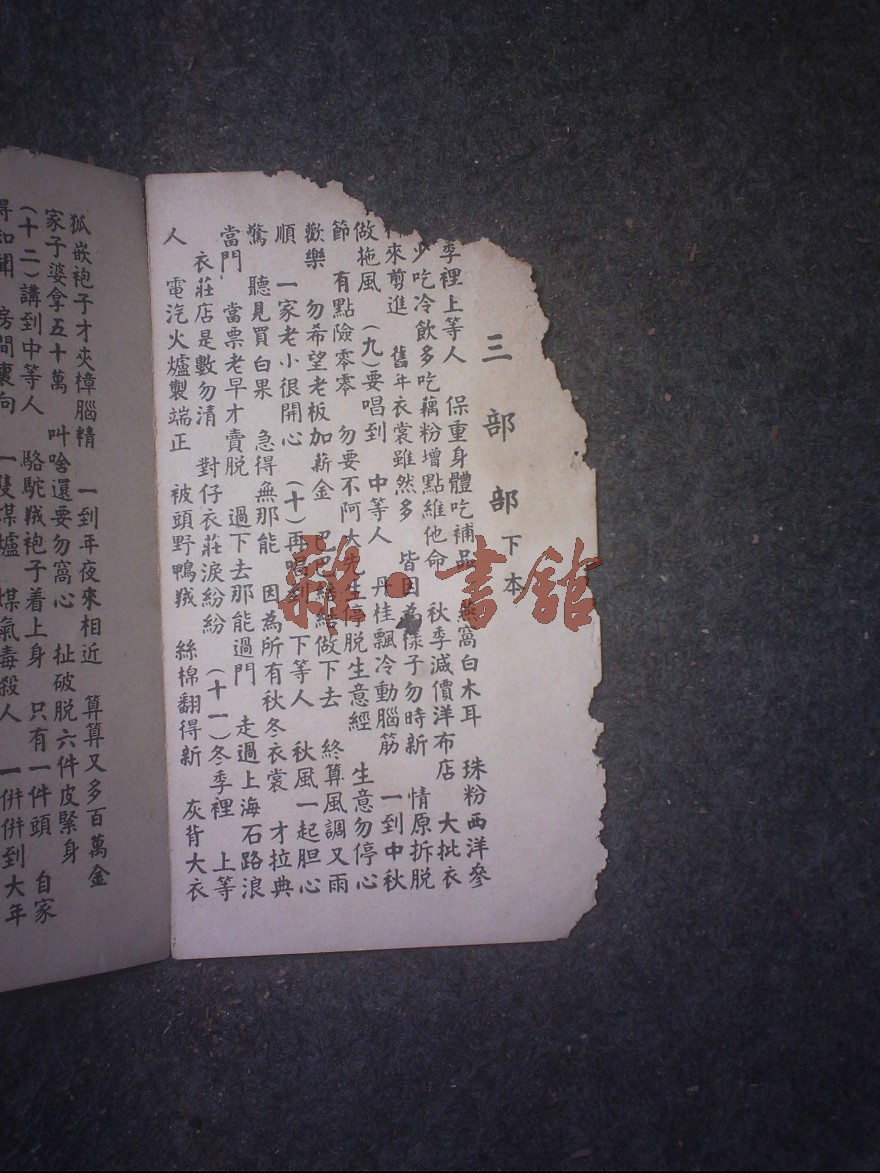 三部部下本
季裡上等人　保重身體吃補品　燕窩白木耳　珠粉西洋參
少吃冷飲多吃藕粉增點維他命　秋季減價洋布店　大批衣
來剪進　舊年衣裳雖然多　皆因為樣子勿時新　情原拆脫
做拖風　(九)要唱到　中等人　丹桂飄冷動腦筋　一到中秋
節　有點險零零　勿要不阿大先生停脫生意經　生意勿停心
歡樂　勿希望老板加薪金　巴巴結結做下去　終算風調又雨
順　一家老小很開心　(十)再唱到　下等人　秋風一起胆心
驚　聽見買白果　急得無那能　因為所有秋冬衣裳　才拉典
當門　當票老早才賣脫　過下去那能過門　走過上海石路浪
衣莊店是數勿清　對仔衣莊淚紛紛　(十一)冬季裡　上等
人　電汽火爐製端正　被頭野鴨羢　絲棉翻得新　灰背大衣
狐嵌袍子才夾樟腦精　一到年夜來相近　算算又多百萬金
家子婆拿五十萬　叫啥還要勿窩心　扯破脫六件皮緊身
(十二)講到中等人　駱駝羢袍子着上身　只有一件頭　自家
得知聞　房間裏向　一隻煤爐　煤氣毒殺人　一併併到大年
雜·書館